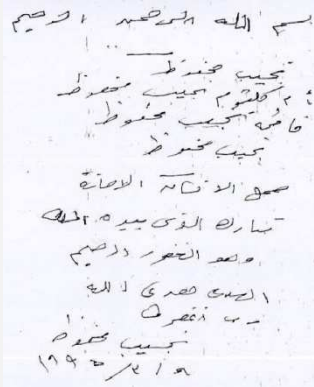 بسم الله الرحمن الرحيم
نجيب محفوظ
أم كلثوم نجيب محفوظ
فاطمة نجيب محفوظ
نجيب محفوظ
الأمانة
تبارك الذى بيده الملك
وهو الغفور الرحيم
الهدى هدى الله
نجيب محفوظ